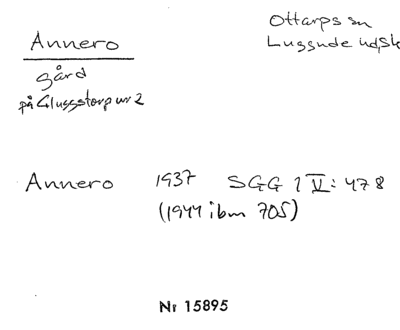 Annero
Ottarps sn
Luggude hd, Sk
gård
på Gluggstorp nr 2
Annero 1937 SGG 1 V: 478
(1944 ibm 705)
Nr 15895